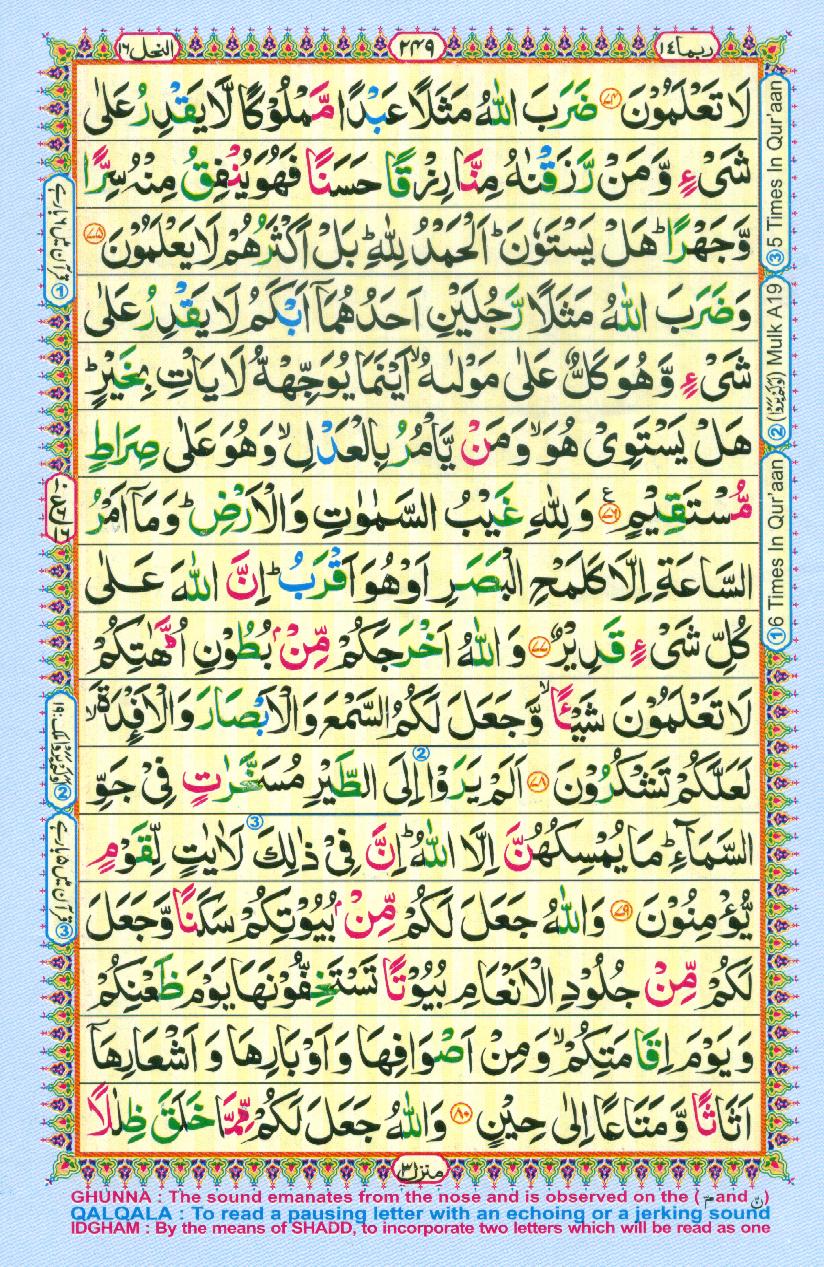 ربما ١٤
٢٤٩
النحل ١٦
لَا تَعْلَمُوْنَ ﴿٧٤﴾ ضَرَبَ اللّٰهُ مَثَلًا عَبْدًا مَّمْلُوْكًا لَّا يَقْدِرُ عَلٰى
شَیْءٍ وَّمَنْ رَّزَقْنٰهُ مِنَّا رِزْقًا حَسَنًا فَهُوَ يُنْفِقُ مِنْهُ سِرًّا
وَّجَهْرًا ؕ هَلْ يَسْتَوٗنَ ؕ اَلْحَمْدُ لِلّٰهِ ؕ بَلْ اَكْثَرُهُمْ لَا يَعْلَمُوْنَ ﴿٧٥﴾
وَضَرَبَ اللّٰهُ مَثَلًا رَّجُلَيْنِ اَحَدُهُمَاۤ اَبْكَمُ لَا يَقْدِرُ عَلٰى
شَیْءٍ وَّهُوَ كَلٌّ عَلٰى مَوْلٰىهُ ۙ اَيْنَمَا يُوَجِّهْهُّ لَا يَاْتِ بِخَيْرٍ ؕ
هَلْ يَسْتَوِیْ هُوَ ۙ وَمَنْ يَّاْمُرُ بِالْعَدْلِ ۙ وَهُوَ عَلٰى صِرَاطٍ
مُّسْتَقِيْمٍ ﴿٧٦﴾ ع وَلِلّٰهِ غَيْبُ السَّمٰوٰتِ وَالْاَرْضِ ؕ وَمَاۤ اَمْرُ
السَّاعَةِ اِلَّا كَلَمْحِ الْبَصَرِ اَوْ هُوَ اَقْرَبُ ؕ اِنَّ اللّٰهَ عَلٰى
كُلِّ شَیْءٍ قَدِيْرٌ ﴿٧٧﴾ وَاللّٰهُ اَخْرَجَكُمْ مِّنْۢ بُطُوْنِ اُمَّهٰتِكُمْ
لَا تَعْلَمُوْنَ شَيْـًٔا ۙ وَّجَعَلَ لَكُمُ السَّمْعَ وَالْاَبْصَارَ وَالْاَفْـِٕدَةَ ۙ
لَعَلَّكُمْ تَشْكُرُوْنَ ﴿٧٨﴾ اَلَمْ يَرَوْا اِلَى ② الطَّيْرِ مُسَخَّرٰتٍ فِیْ جَوِّ
السَّمَآءِ ؕ مَا يُمْسِكُهُنَّ اِلَّا اللّٰهُ ؕ اِنَّ فِیْ ذٰلِكَ ③ لَاٰيٰتٍ لِّقَوْمٍ
يُّؤْمِنُوْنَ ﴿٧٩﴾ وَاللّٰهُ جَعَلَ لَكُمْ مِّنْۢ بُيُوْتِكُمْ سَكَنًا وَّجَعَلَ
لَكُمْ مِّنْ جُلُوْدِ الْاَنْعَامِ بُيُوْتًا تَسْتَخِفُّوْنَهَا يَوْمَ ظَعْنِكُمْ
وَيَوْمَ اِقَامَتِكُمْ ۙ وَمِنْ اَصْوَافِهَا وَاَوْبَارِهَا وَاَشْعَارِهَاۤ
اَثَاثًا وَّمَتَاعًا اِلٰى حِيْنٍ ﴿٨٠﴾ وَاللّٰهُ جَعَلَ لَكُمْ مِّمَّا خَلَقَ ظِلٰلًا
منزل ٣
③ 5 Times In Qur'aan
② (اَوَلَمْ يَرَوْا) Mulk A19
① 6 Times In Qur'aan
① قرآن میں ٦ بار ہے
② (اَوَلَمْ يَرَوْا) ملک: ١٩
③ قرآن میں ٥ بار ہے
GHUNNA : The sound emanates from the nose and is observed on the ( مّ and نّ )
QALQALA : To read a pausing letter with an echoing or a jerking sound
IDGHAM : By the means of SHADD, to incorporate two letters which will be read as one